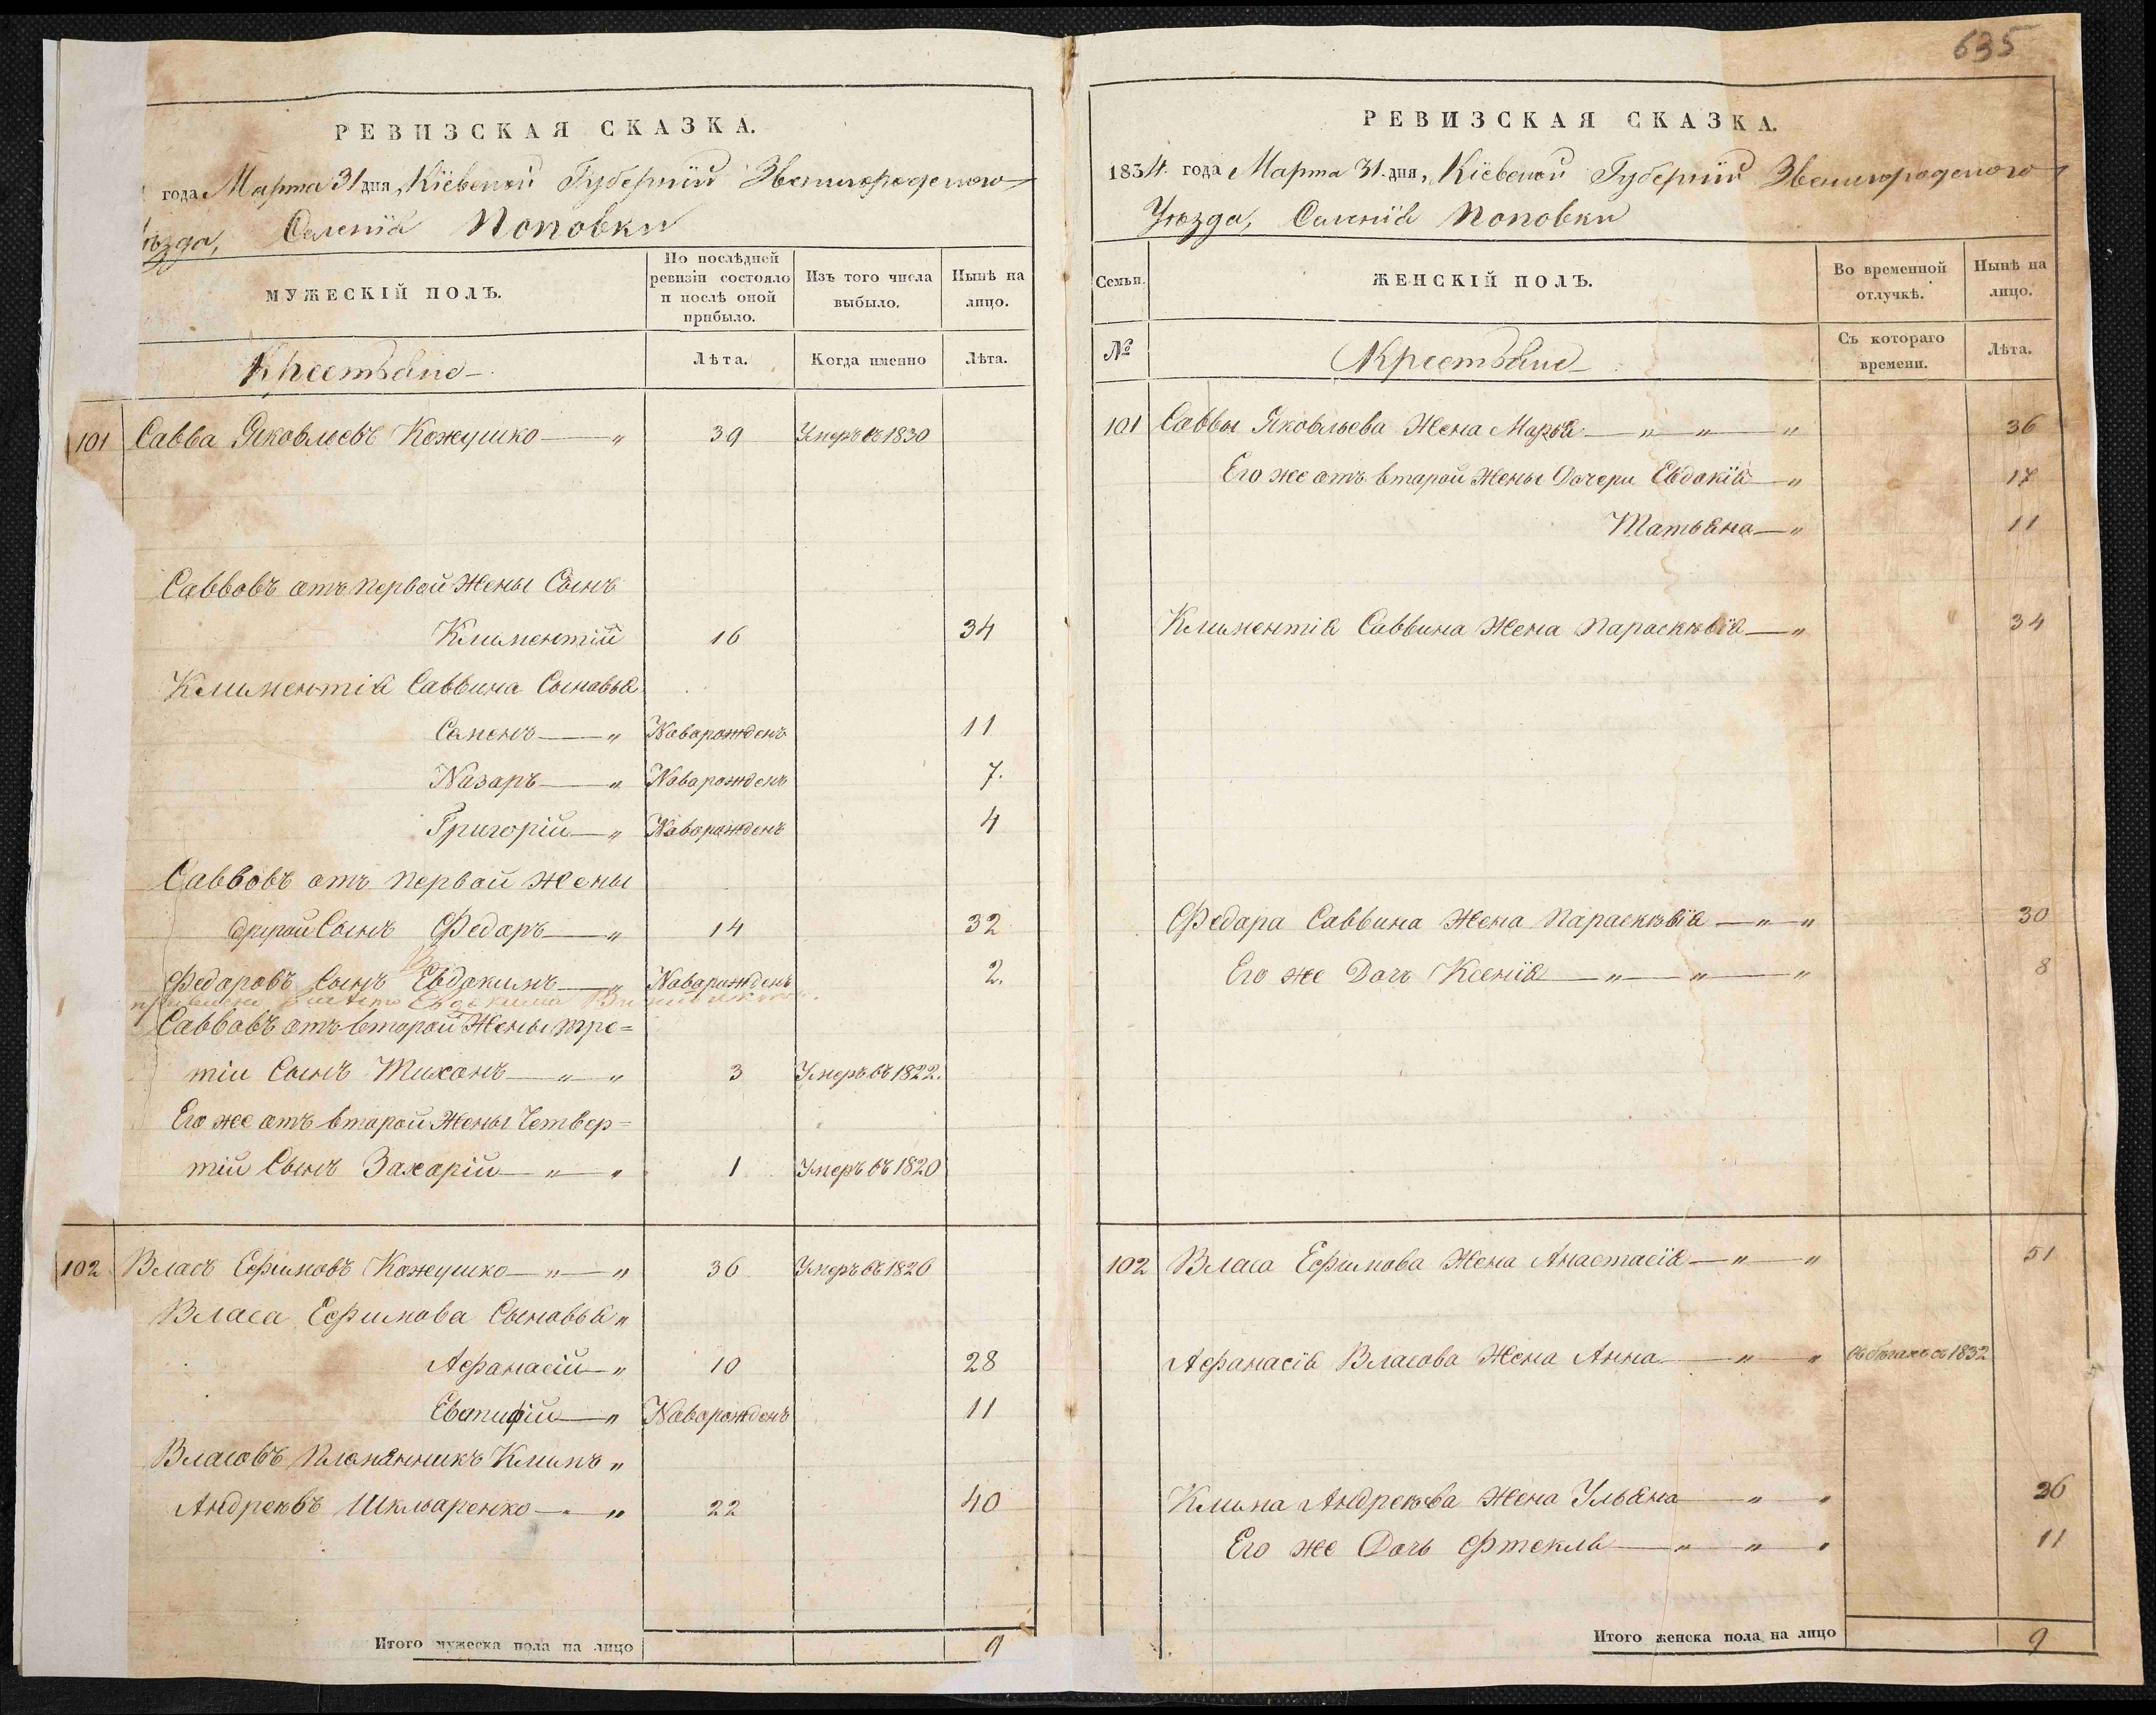 635
РЕВИЗСКАЯ СКАЗКА.
года Марта 31 дня, Кіевской Губерніи Звенигородского
ѣзда, Селенія Поповки
МУЖЕСКІЙ ПОЛЪ.
По послѣдней ревизіи состояло и послѣ оной прибыло.
Изъ того числа выбыло.
Нынѣ на лицо.
Крестьяне
Лѣта.
Когда именно
Лѣта.
101 Савва Яковлевъ Кожушко — „ 39 Умеръ въ 1830
Саввовъ отъ первой Жены Сынъ
Климентій 16 34
Климентія Саввина Сыновья
Семенъ — „ Новорожденъ 11
Назаръ — „ Новорожденъ 7.
Григорій — „ Новорожденъ 4
Саввовъ отъ первой Жены
другой Сынъ Федоръ — „ 14 32
Федоровъ Сынъ Евдокимъ — „ Новорожденъ 2.
вместо Евдокима
Саввовъ отъ второй Жены тре=
тій Сынъ Тихонъ — „ — „ 3 Умеръ въ 1822.
Его же отъ второй Жены Четвер=
тій Сынъ Захарій — „ — „ 1 Умеръ въ 1820
102 Власъ Ефимовъ Кожушко — „ — „ 36 Умеръ въ 1826
Власа Ефимова Сыновья „
Афанасій — „ 10 28
Евстифій — „ Новорожденъ 11
Власовъ Племянникъ Климъ „
Андреевъ Шкляренко — „ — „ 22 40
Итого мужеска пола на лицо 9
РЕВИЗСКАЯ СКАЗКА.
1834. года Марта 31. дня, Кіевской Губерніи Звенигородского
Уѣзда, Селенія Поповки
Семьи.
ЖЕНСКІЙ ПОЛЪ.
Во временной отлучкѣ.
Нынѣ на лицо.
№
Крестьяне
Съ котораго времени.
Лѣта.
101 Саввы Яковлева Жена Марья — „ — „ — „ 36
Его же отъ второй Жены Дочери Евдокія — „ 17
Татьяна — „ 11
Климентія Саввина Жена Параскѣвія — „ 34
Федора Саввина Жена Параскѣвія — „ — „ 30
Его же Дочь Ксенія — „ — „ — „ 8
102 Власа Ефимова Жена Анастасія — „ — „ 51
Афанасія Власова Жена Анна — „ — „ въ бѣгахъ съ 1832
Клима Андреева Жена Ульяна — „ — „ 36
Его же Дочь Фтекля — „ — „ — „ 11
Итого женска пола на лицо 9